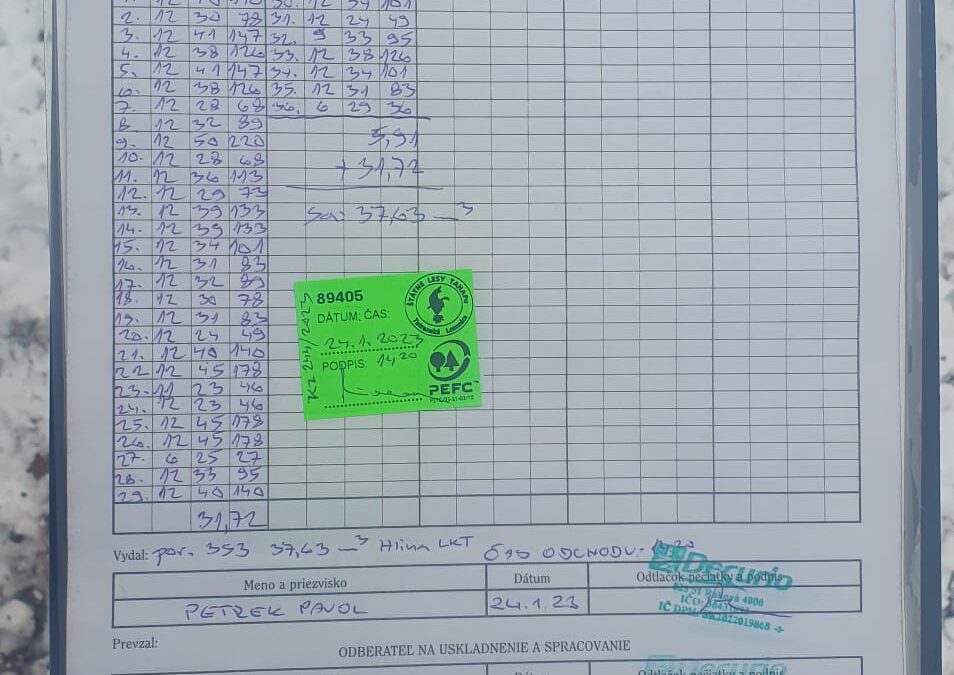 2. 12 30 78 31. 12 24 49
3. 12 41 147 32. 9 33 95
4. 12 38 126 33. 12 38 126
5. 12 41 147 34. 12 34 101
6. 12 38 126 35. 12 31 83
7. 12 28 68 36. 6 29 36
8. 12 32 89
9. 12 50 220
10. 12 28 68
11. 12 36 113
12. 12 29 73
13. 12 39 133
14. 12 39 133
15. 12 34 101
16. 12 31 83
17. 12 32 89
18. 12 30 78
19. 12 31 83
20. 12 24 49
21. 12 40 140
22. 12 45 178
23. 11 23 46
24. 12 23 46
25. 12 45 178
26. 12 45 178
27. 6 25 27
28. 12 33 95
29. 12 40 140
31,72
5,91
+ 31,72
37,63 m³
89405
DÁTUM: ČAS:
24.1.2023
14 20
PODPIS:
KZ 244/2023
ŠTÁTNE LESY TANAPu
Tatranská Lomnica
PEFC™
Vydal: por. 353 37,63 m³ Hlina LKT ČAS ODCHODU:
Meno a priezvisko Dátum Odtlačok pečiatky a podpis
PETREK PAVOL 24.1.23
Decunio
IČO:
IČ DPH:
Prevzal:
ODBERATEĽ NA USKLADNENIE A SPRACOVANIE